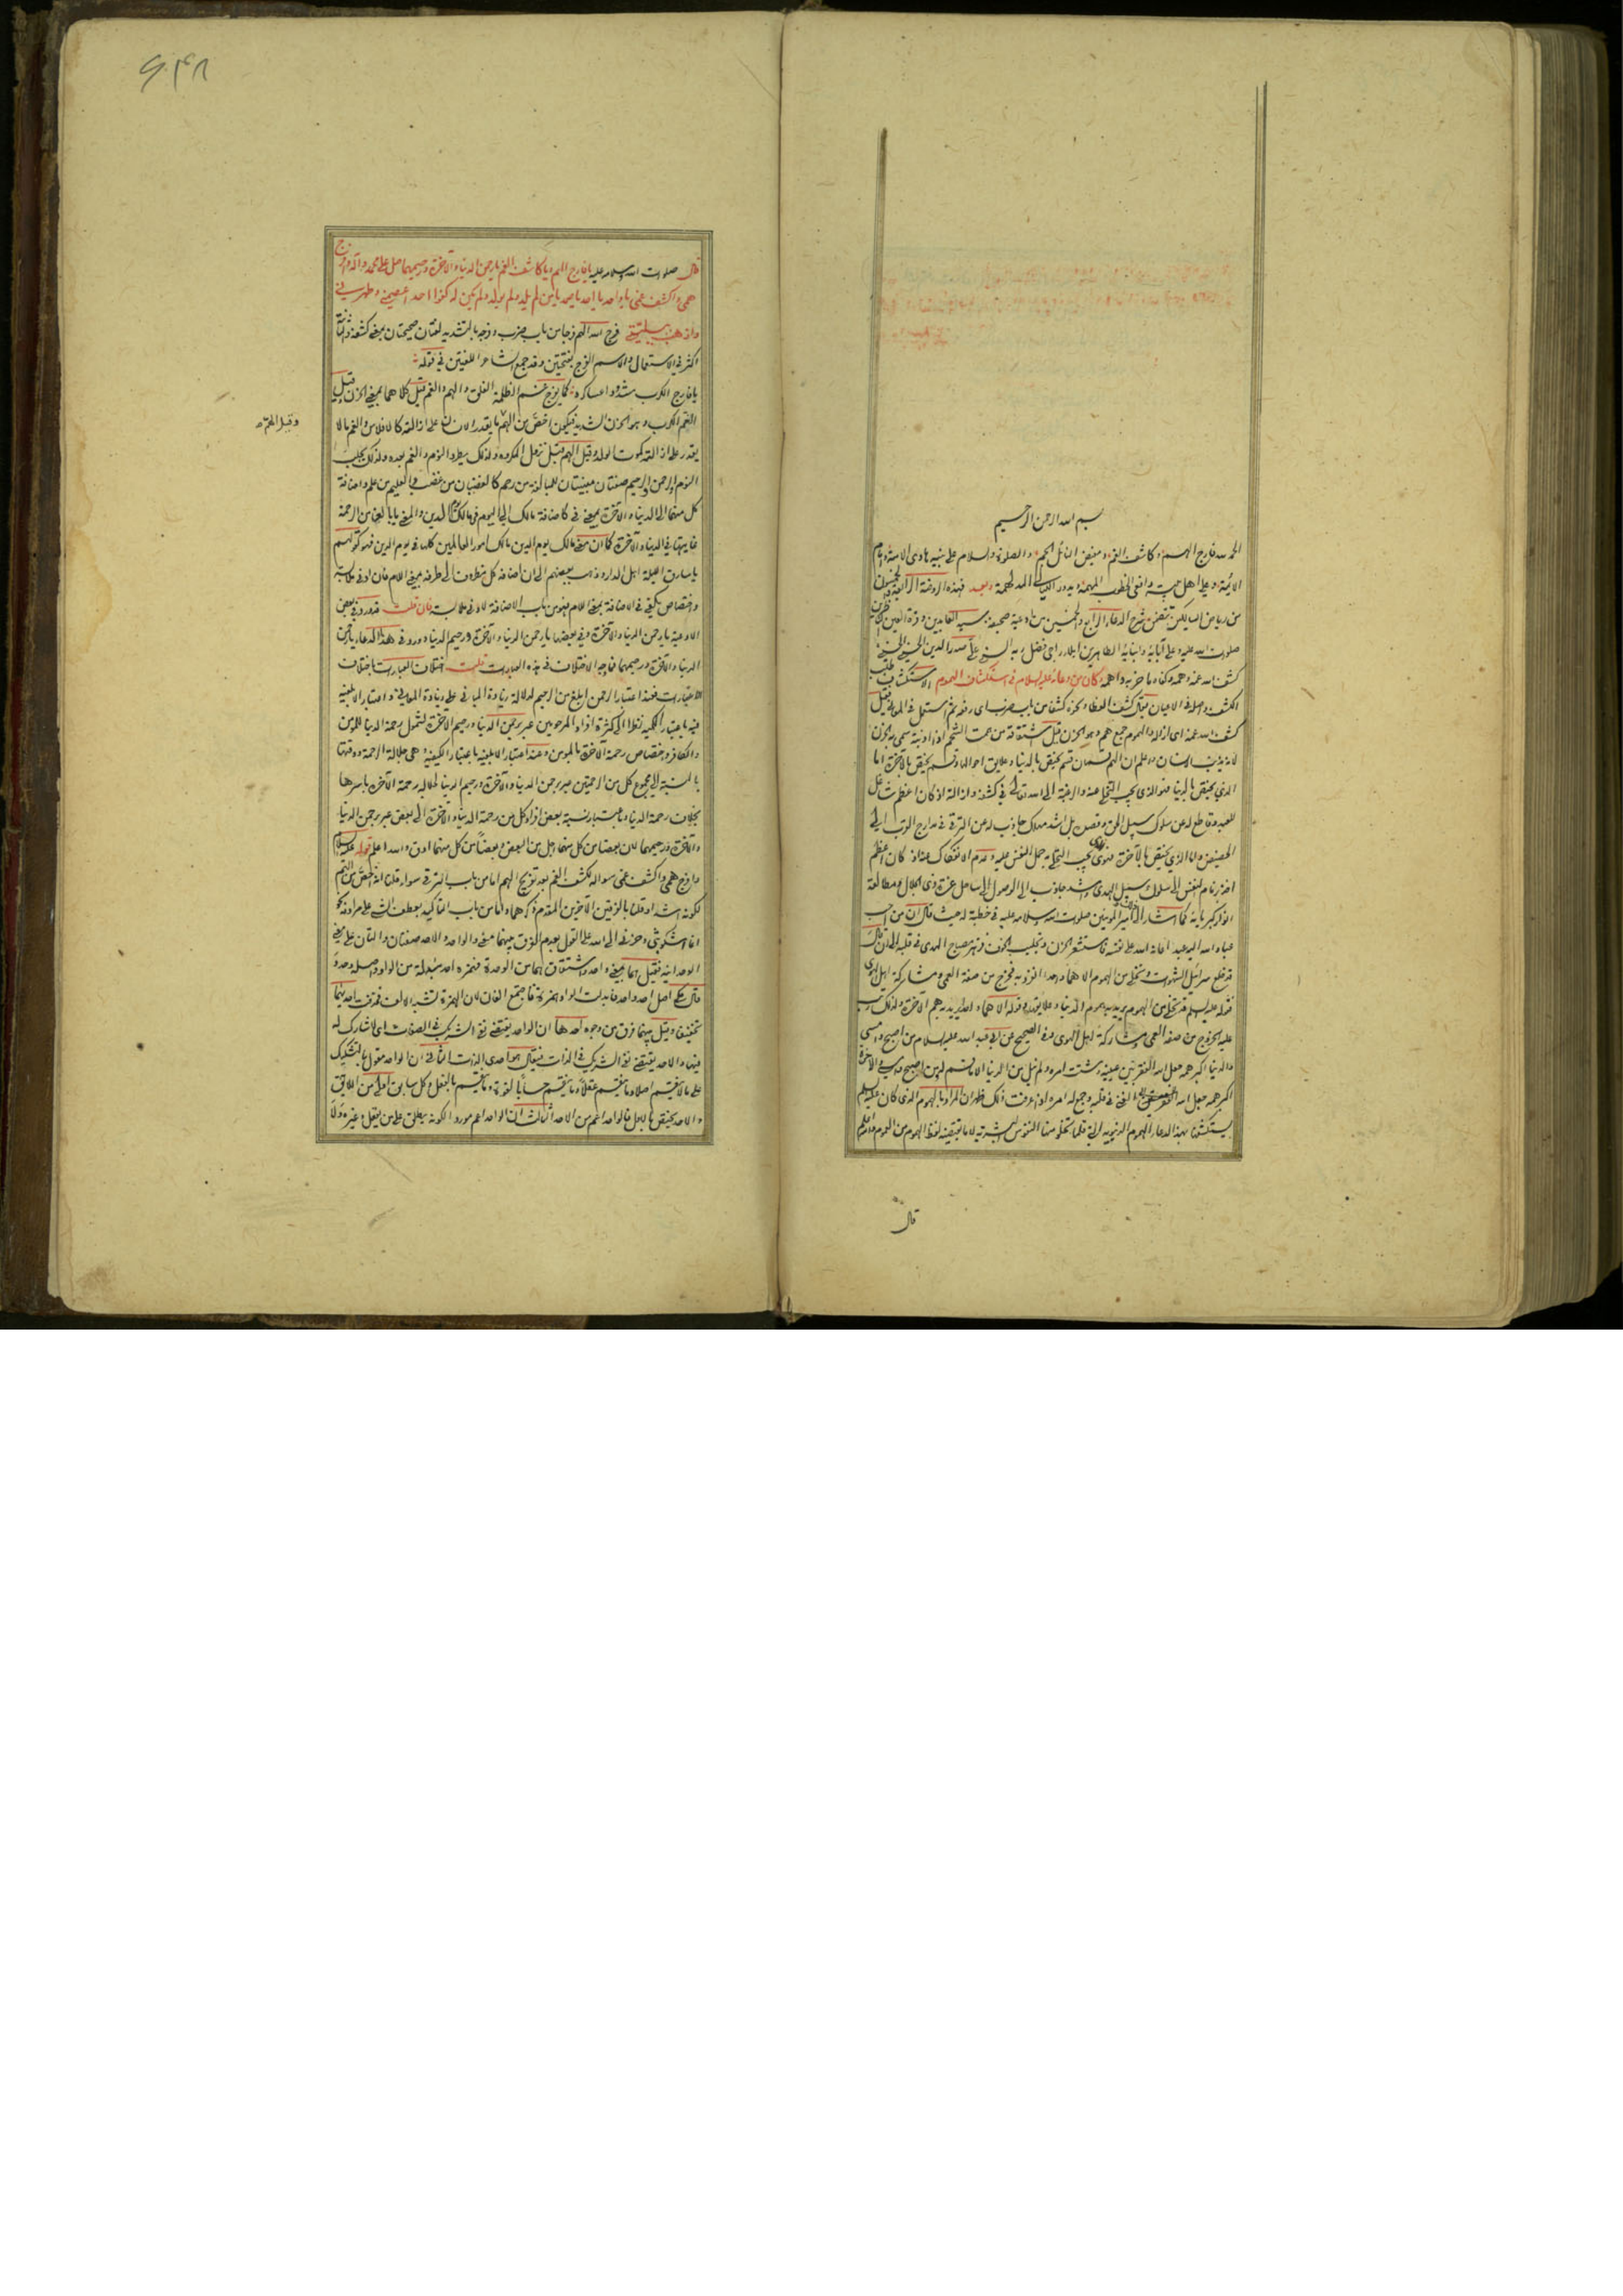 بسم الله الرحمن الرحيم
الحمد لله فارج الهم وكاشف الغم ومفيض النائل الجم والصلوة والسلام على نبيه هادي الامة وامام
الائمة وعلى اهل بيته
من رياض السالكين تتضمن شرح الدعاء الرابع والخمسين من ادعية صحيفة سيد العابدين وقرة العين
صلوات الله عليه وعلى آبائه وابنائه الطاهرين املاء راجي فضل ربه السني علي صدر الدين الحسيني الحسني
كشف الله غمه وهمه وكفاه ما حزبه واهمه وكان من دعائه عليه السلام في استكشاف الهموم الاستكشاف طلب
الكشف واصله في الاعيان يقال كشف الغطاء ونحوه كشفا من باب ضرب اى رفعه ثم استعمل في المعاني فقيل
كشف الله غمه اى ازاله والهموم جمع هم وهو الحزن قيل اشتقاقه من هممت الشحم اذا اذبته سمى به الحزن
لانه يذيب الانسان واعلم ان الهم قسمان قسم يختص بالدنيا وعلايق احوالها وقسم يختص بالآخرة اما
الذي يختص بالدنيا فهو الذي يجب التخلي عنه والرغبة الى الله تعالى في كشفه وازالته اذ كان اعظم شاغل
للعبد وقاطع له عن سلوك سبيل الحق
الحضيض واما الذي يختص بالآخرة فهو الذي يجب التحلي به وحمل النفس عليه وعدم الانفكاك عنه اذ كان اعظم
اخذ بزمام النفس الى سلوك سبيل الهدى واشد جاذب الى الوصول الى ساحل عزة ذي الجلال ومطالعة
انوار كبريائه كما اشار اليه امير المؤمنين صلوات الله وسلامه عليه في خطبة له حيث قال ان من احب
عباد الله اليه عبدا اعانه الله على نفسه فاستشعر الحزن وتجلبب الخوف فزهر مصباح الهدى في قلبه الى ان قال
قد خلع سرابيل الشهوات وتخلى من الهموم الا هما واحدا انفرد به فخرج من صفة العمى ومشاركة اهل الهوى
فقوله عليه السلام قد تخلى من الهموم يريد به هموم الدنيا وعلايقها وقوله الا هما واحدا يريد به هم الآخرة ولذلك رتب
عليه الخروج من صفة العمى ومشاركة اهل الهوى وفي الصحيح عن ابي عبد الله عليه السلام من اصبح وامسى
والدنيا اكبر همه جعل الله الفقر بين عينيه وشتت امره ولم ينل من الدنيا الا ما قسم له ومن اصبح وامسى والآخرة
اكبر همه جعل الله الغنى في قلبه وجمع له امره اذا عرفت ذلك ظهر ان المراد بالهموم الذي كان عليه السلام
يستكشفها بهذا الدعاء الهموم الدنيوية التي قلما تخلو منها النفوس البشرية لا ما يقتضيه لفظ الهموم من العموم والله اعلم
قال
قال صلوات الله وسلامه عليه يا فارج الهم ويا كاشف الغم يا رحمن الدنيا والآخرة ورحيمهما صل على محمد وآل محمد وافرج
همي واكشف غمي يا واحد يا احد يا صمد يا من لم يلد ولم يولد ولم يكن له كفوا احد اعصمني وطهرني
واذهب ببليتي فرج الله الهم فرجا من باب ضرب وفرجه بالتشديد لغتان صحيحتان بمعنى كشفه والثانية
اكثر في الاستعمال والاسم الفرج بفتحتين وقد جمع الشاعر اللغتين في قوله
يا فارج الكرب مشدودا عساكره كما يفرج غم الظلمة الفلق والهم والغم قيل كلاهما بمعنى الحزن وقيل
الغم الكرب وهو الحزن الشديد فيكون اخص من الهم ما يقدر الانسان على ازالته كالافلاس والغم ما لا
وقيل الهم
يقدر على ازالته كموت الولد وقيل الهم قبل نزول المكروه ولذلك يطرد النوم والغم بعده ولذلك يجلب
النوم والرحمن والرحيم صفتان مبنيتان للمبالغة من رحم كالغضبان من غضب والعليم من علم واضافة
كل منهما الى الدنيا والآخرة بمعنى في كاضافة مالك الى اليوم في مالك يوم الدين والمعنى يا بالغا من الرحمة
غايتها في الدنيا والآخرة كما ان معنى مالك يوم الدين مالك امور العالمين كلها في يوم الدين فهو كقولهم
يا سارق الليلة اهل الدار وذهب بعضهم الى ان اضافة كل مظروف الى ظرفه بمعنى اللام فان ادنى ملابسة
واختصاص يكفي في الاضافة بمعنى اللام فهو من باب الاضافة لادنى ملابسة فان قلت قد ورد في بعض
الادعية يا رحمن الدنيا والآخرة وفي بعضها يا رحمن الدنيا والآخرة ورحيم الدنيا وورد في هذا الدعاء يا رحمن
الدنيا والآخرة ورحيمهما فما وجه الاختلاف في هذه العبارات قلت اختلاف العبارات باختلاف
الاعتبارات فعند اعتبار الرحمن ابلغ من الرحيم لدلالة زيادة المباني على زيادة المعاني واعتبار الابلغية
فيه باعتبار الكمية نظرا الى كثرة افراد المرحومين عبر برحمن الدنيا ورحيم الآخرة لشمول رحمة الدنيا للمؤمن
والكافر واختصاص رحمة الآخرة بالمؤمن وعند اعتبار الابلغية باعتبار الكيفية وهي جلالة الرحمة ودقتها
بالنسبة الى مجموع كل من الرحمتين عبر برحمن الدنيا والآخرة ورحيم الدنيا لجلالة رحمة الآخرة باسرها
بخلاف رحمة الدنيا وباعتبار نسبة بعض افراد كل من رحمة الدنيا والآخرة الى بعض عبر برحمن الدنيا
والآخرة ورحيمهما لان بعضا من كل منهما اجل من البعض وبعضا من كل منهما ادق والله اعلم قوله عليه السلام
وافرج همي واكشف غمي سواله لكشف الغم بعد تفريج الهم اما من باب الترقي سواء قلنا انه اخص من الهم
لكونه اشد او قلنا بالفرقين الآخرين المقدم ذكرهما واما من باب التاكيد بعطف الشيء على مرادفه نحو
انما اشكو بثي وحزني الى الله على القول بعدم الفرق بينهما معنى والواحد والاحد صفتان دالتان على معنى
الوحدانية فقيل هما بمعنى واحد واشتقاقهما من الوحدة فهمزة احد مبدلة من الواو واصله وحد
قال مكي اصل احد واحد فابدلت الواو همزة فاجتمع الفان لان الهمزة تشبه الالف فحذفت احديهما
تخفيفا وقيل بينهما فرق من وجوه احدها ان الواحد يقتضي نفي الشريك في الصفات اى لا مشارك له
فيها والاحد يقتضي نفي الشريك في الذات فيقال هو احدي الذات الثاني ان الواحد مقول بالتشكيك
على ما لا ينقسم اصلا وما ينقسم عقلا وما ينقسم حسا بالقوة وما ينقسم بالفعل وكل سابق اولى من اللاحق
والاحد يختص بالاول فالواحد اعم من الاحد الثالث ان الواحد اعم موردا لكونه يطلق على من يعقل وغيره ولا